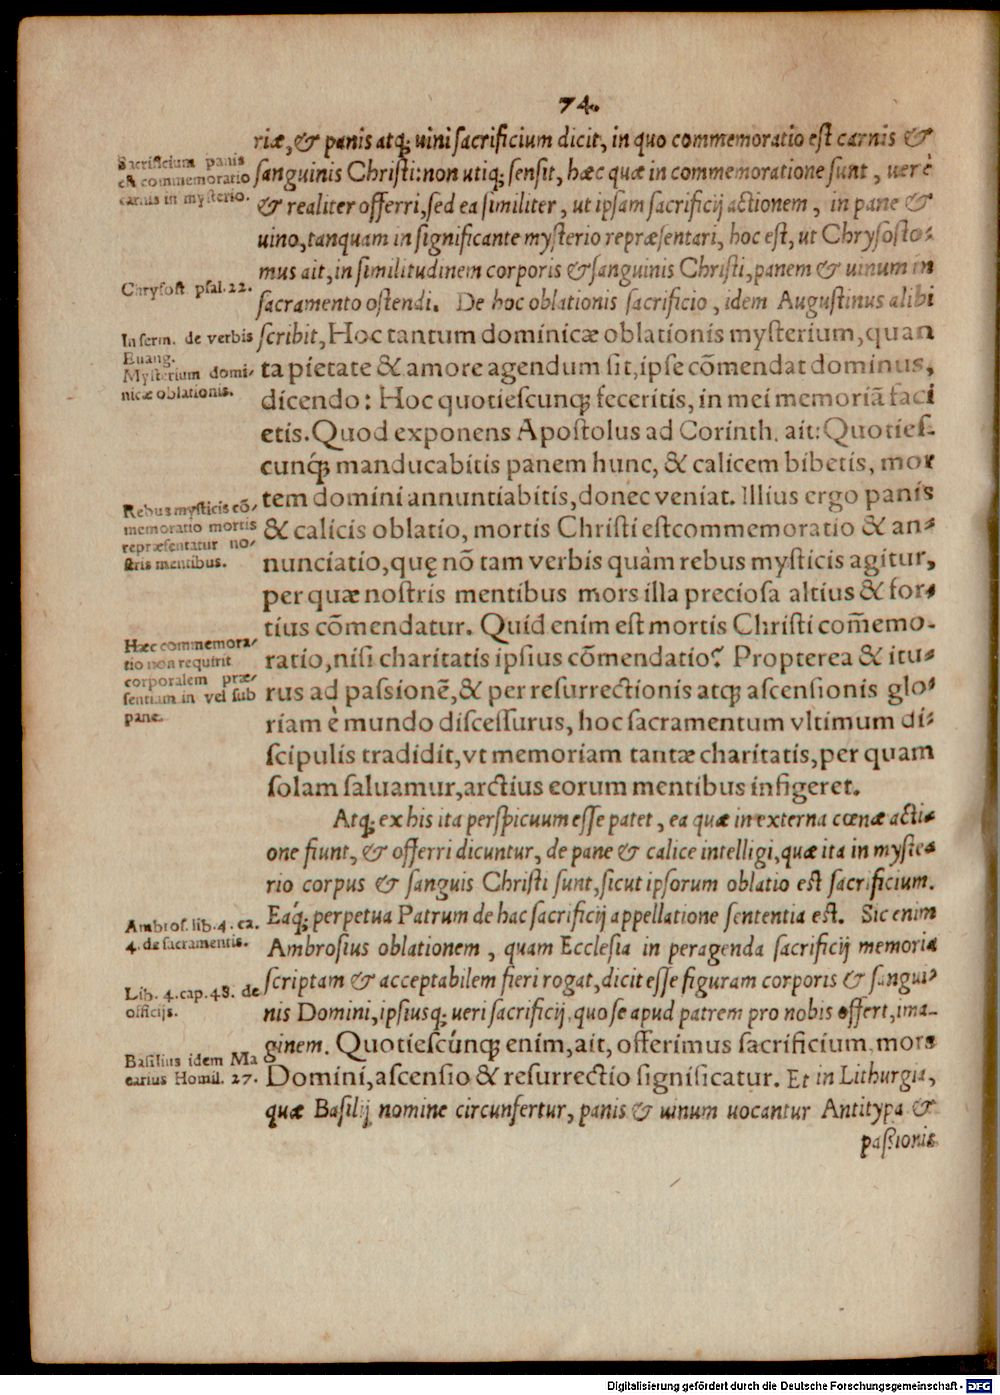 74.
riæ, & panis atq; uini sacrificium dicit, in quo commemoratio est carnis &
Sacrificium panis
est commemoratio
carnis in mysterio.
sanguinis Christi: non utiq; sensit, hæc quæ in commemoratione sunt, uerè
& realiter offerri, sed ea similiter, ut ipsam sacrificij actionem, in pane &
uino, tanquam in significante mysterio repræsentari, hoc est, ut Chrysosto-
mus ait, in similitudinem corporis & sanguinis Christi, panem & uinum in
Chrysost. psal. 22.
sacramento ostendi. De hoc oblationis sacrificio, idem Augustinus alibi
In serm. de verbis
Euang.
Mysterium domi-
nicæ oblationis.
scribit, Hoc tantum dominicæ oblationis mysterium, quan
ta pietate & amore agendum sit, ipse cõmendat dominus,
dicendo: Hoc quotiescunq; feceritis, in mei memoriã faci
etis. Quod exponens Apostolus ad Corinth. ait: Quoties-
cunq́; manducabitis panem hunc, & calicem bibetis, mor
tem domini annuntiabitis, donec veniat. Illius ergo panis
Rebus mysticis cõ-
memoratio mortis
repræsentatur no-
stris mentibus.
& calicis oblatio, mortis Christi estcommemoratio & an-
nunciatio, quę nõ tam verbis quàm rebus mysticis agitur,
per quæ nostris mentibus mors illa preciosa altius & for-
tius cõmendatur. Quid enim est mortis Christi com̃emo-
Hæc commemora-
tio non requirit
corporalem præ-
sentiam in vel sub
pane.
ratio, nisi charitatis ipsius cõmendatio? Propterea & itu-
rus ad passionẽ, & per resurrectionis atq; ascensionis glo-
riam è mundo discessurus, hoc sacramentum vltimum di-
scipulis tradidit, vt memoriam tantæ charitatis, per quam
solam saluamur, arctius eorum mentibus infigeret.
Atq; ex his ita perspicuum esse patet, ea quæ in externa cœnæ acti-
one fiunt, & offerri dicuntur, de pane & calice intelligi, quæ ita in myste-
rio corpus & sanguis Christi sunt, sicut ipsorum oblatio est sacrificium.
Eaq́; perpetua Patrum de hac sacrificij appellatione sententia est. Sic enim
Ambros. lib. 4. ca.
4. de sacramentis.
Ambrosius oblationem, quam Ecclesia in peragenda sacrificij memoria
scriptam & acceptabilem fieri rogat, dicit esse figuram corporis & sangui-
Lib. 4. cap. 48. de
officijs.
nis Domini, ipsiusq; ueri sacrificij, quo se apud patrem pro nobis offert, ima-
ginem. Quotiescúnq; enim, ait, offerimus sacrificium, mors
Basilius idem Ma
carius Homil. 27.
Domini, ascensio & resurrectio significatur. Et in Lithurgia,
quæ Basilij nomine circunfertur, panis & uinum uocantur Antitypa &
passionis
Digitalisierung gefördert durch die Deutsche Forschungsgemeinschaft - DFG